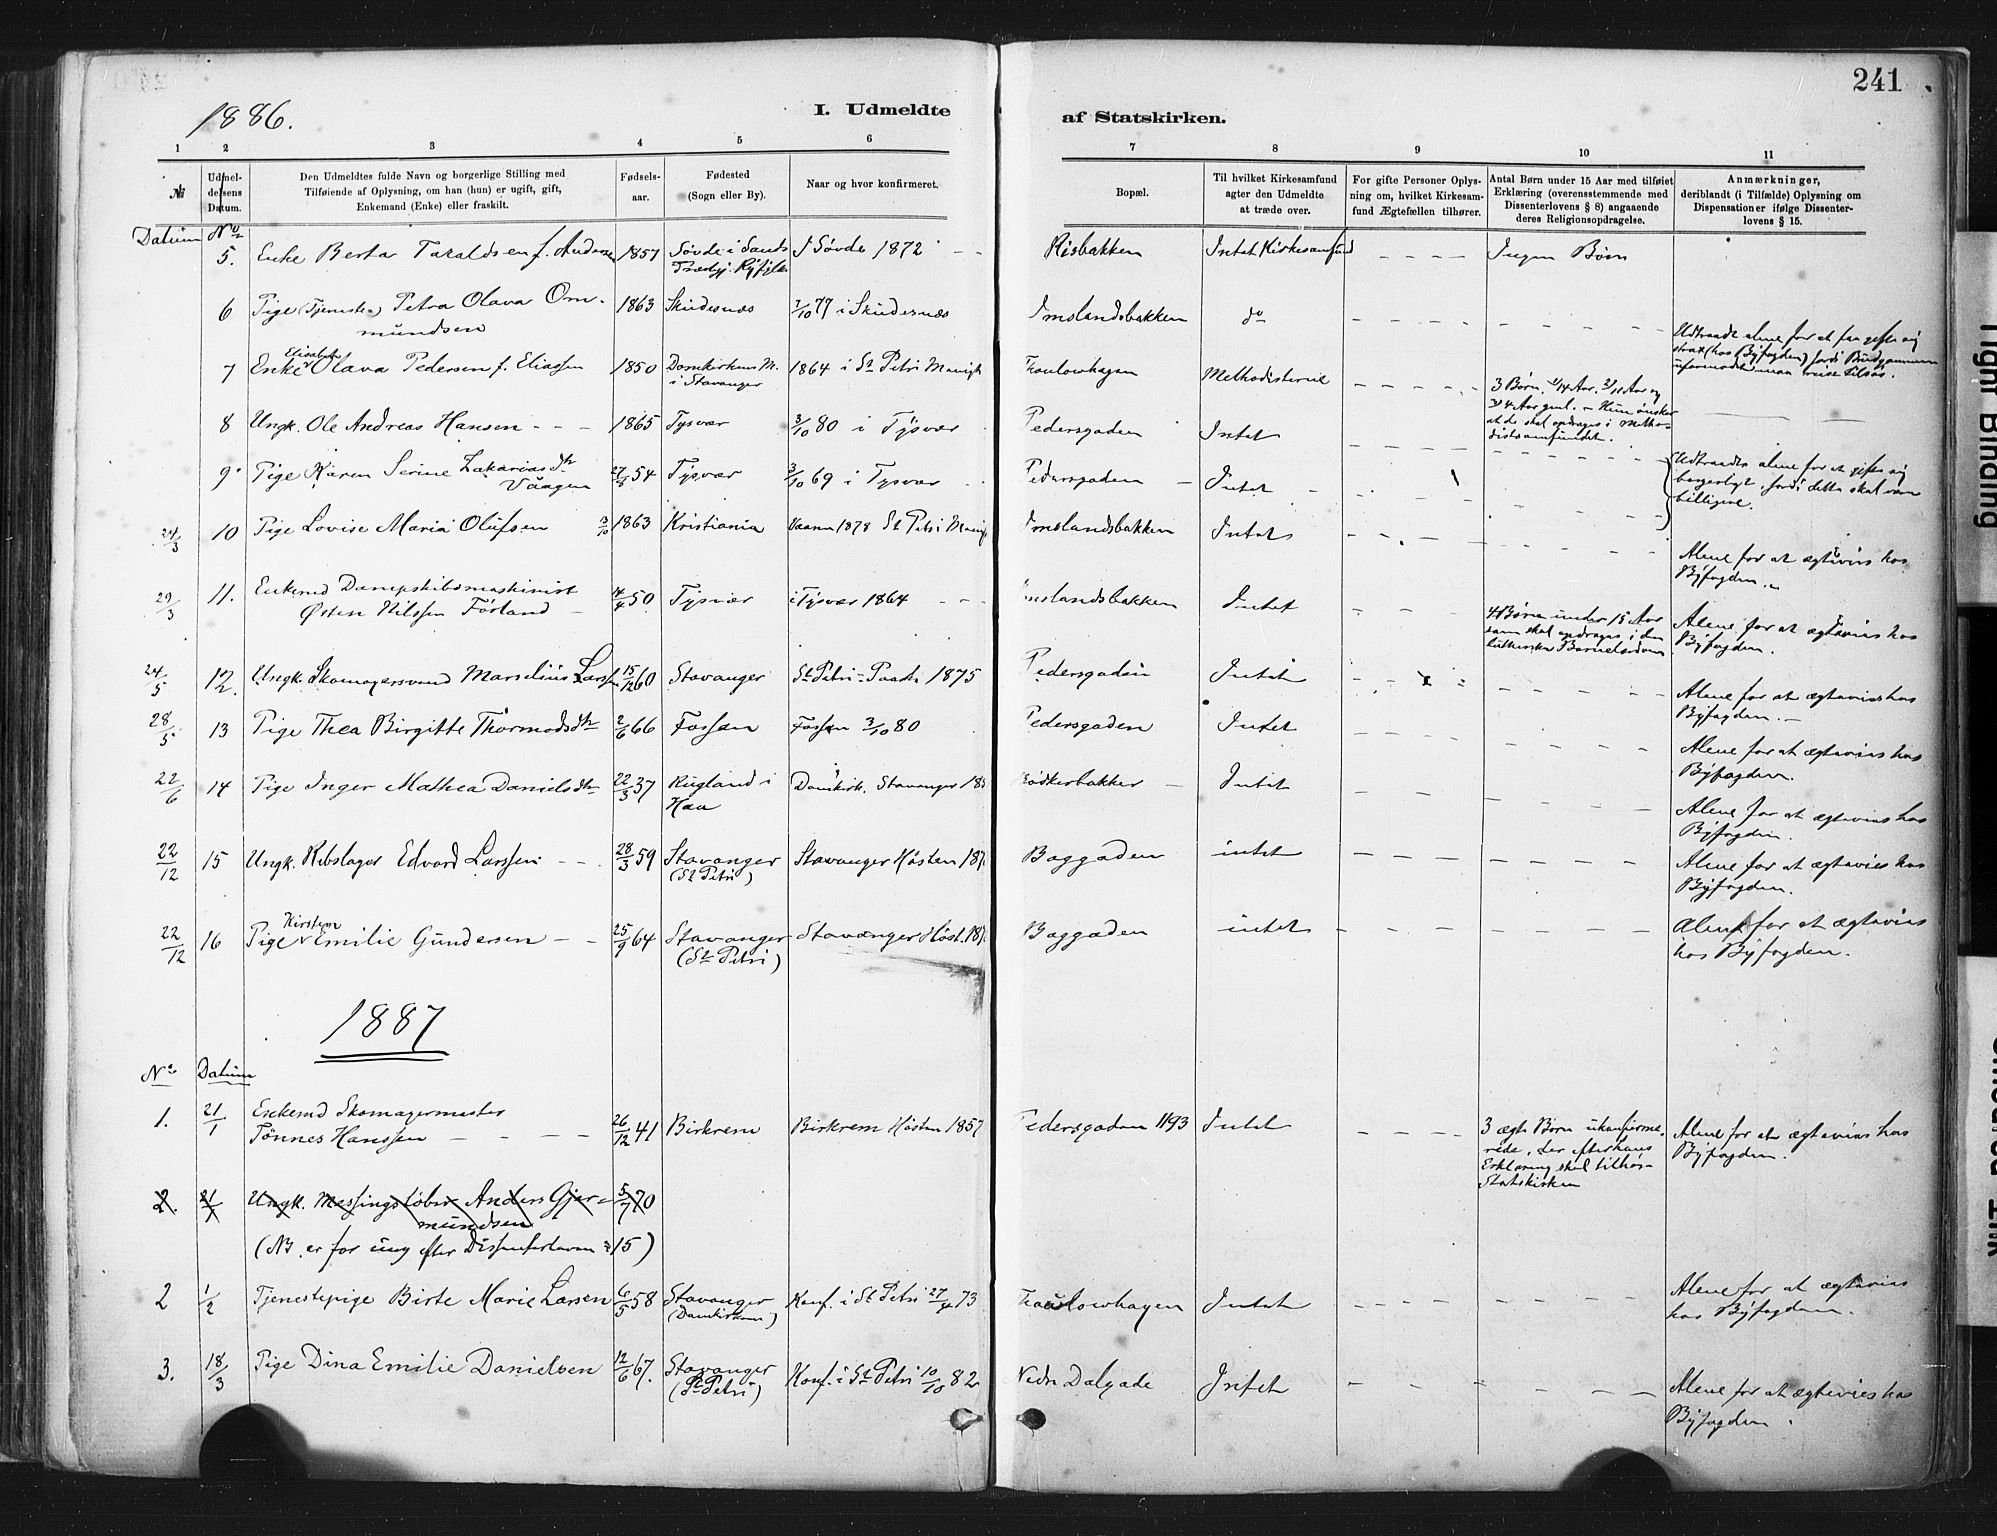 241
1886.
I. Udmeldte
af Statskirken.
1 2 3 4 5 6 7 8 9 10 11
№
Udmel-
delsens
Datum.
Den Udmeldtes fulde Navn og borgerlige Stilling med
Tilføiende af Oplysning, om han (hun) er ugift, gift,
Enkemand (Enke) eller fraskilt.
Fødsels-
aar.
Fødested
(Sogn eller By).
Naar og hvor konfirmeret.
Bopæl.
Til hvilket Kirkesamfund
agter den Udmeldte
at træde over.
For gifte Personer Oplys-
ning om, hvilket Kirkesam-
fund Ægtefællen tilhører.
Antal Børn under 15 Aar med tilføiet
Erklæring (overensstemmende med
Dissenterlovens § 8) angaaende
deres Religionsopdragelse.
Anmærkninger,
deriblandt (i Tilfælde) Oplysning om
Dispensationer ifølge Dissenter-
lovens § 15.
Datum No
5. Enke Berta Taraldsen f. Andersen 1857 Søvde i Sands I Søvde 1872 - - Risbakken Intet Kirkesamfund - - - - Ingen Børn
Præstgj. Ryfylke
6 Pige (Tjeneste) Petra Olava Om- 1863 Skudesnæs 7/10 77 i Skudesnæs Imslandsbakken do - - - -
mundsen
Udtraadt alene for at faa gifte sig
strax (hos Byfogden) fordi Brudgommen
uformodet maa reise tilsøs.
7 Enke Elisabeth Olava Pedersen f. Eliassen 1850 Domkirkens M. 1864 i St Petri Menigh Thoulowhagen Methodisterne - - - -
i Stavanger
3 Børn, 14 Aar, 11 Aar og
4 Aar gml. - Hun ønsker
at de skal opdrages i Metho-
distsamfundet.
8 Ungk. Ole Andreas Hansen - - - 1865 Tysvær 3/10 80 i Tysvær Pedersgaden Intet
9. Pige Karen Serine Zakariasdtr 27/8 54 Tysvær 3/10 69 i Tysvær Pedersgaden - Intet -
Vaagen
Udtraadte alene for at gifte sig
borgerligt, fordi dette skal være
billigere.
24/3 10 Pige Lovise Maria Olufsen 13/10 1863 Kristiania Vaaren 1878 St Petri Menigh Imslandsbakken Intet
Alene for at ægtevies hos
Byfogden.
29/3 11. Enkemd Dampskibsmaskinist
Østen Nilssen Førland 4/4 50 Tysvær i Tysvær 1864 - - - Imslandsbakken Intet
4 Børn under 15 Aar
som skal opdrages i den
lutherske Barnelærdom
Alene for at ægtevies hos
Byfogden.
24/5 12. Ungk. Skomagersvend Marselius Larssen 15/12 60 Stavanger St Petri - Paaske 1875 Pedersgaden Intet
Alene for at ægtevies hos
Byfogden. -
28/5 13 Pige Thea Birgitte Thormodsdtr 2/6 66 Fossan Fossan 3/10 80 Pedersgaden Intet
Alene for at ægtevies hos
Byfogden.
22/6 14 Pige Inger Mathea Danielsdtr 22/3 37 Rugland i Domkirk. Stavanger 185 Bødkerbakken - Intet
Haa
Alene for at ægtevies hos
Byfogden.
22/12 15 Ungk. Rebslager Edvard Larssen - - - 28/3 59 Stavanger Stavanger Høsten 187 Baggaden intet
(St Petri)
Alene for at ægtevies hos
Byfogden.
22/12 16 Pige Kirsten Emilie Gundersen - - 25/9 64 Stavanger Stavanger Høst. 187 Baggaden intet
(St Petri)
Alene for at ægtevies
hos Byfogden.
1887
No Datum
1. 21/1 Enkemd Skomagermester
Tønnes Hanssen - - - - 26/12 41 Birkrem Birkrem Høsten 1857 Pedersgaden 1193 Intet - - - -
3 ægte Børn ukonfirme-
rede, der efter hans
Erklæring skal tilhøre
Statskirken
Alene for at ægtevies hos
Byfogden.
2. 21/1 Ungk. Messingstøber Anders Gjer- 5/7 70
mundsen
(NB. er for ung efter Dissenterloven § 15)
2 1/2 Tjenestepige Birte Marie Larsen 6/5 58 Stavanger Konf. i St Petri 27/4 73 Thoulowhagen Intet
(Domkirken)
Alene for at ægtevies
hos Byfogden.
3. 18/3 Pige Dina Emilie Danielsen 12/6 67. Stavanger Konf. i St Petri 10/10 82 Nedr. Dalgade Intet
(St Petri)
Alene for at ægtevies hos
Byfogden.
Tight Binding